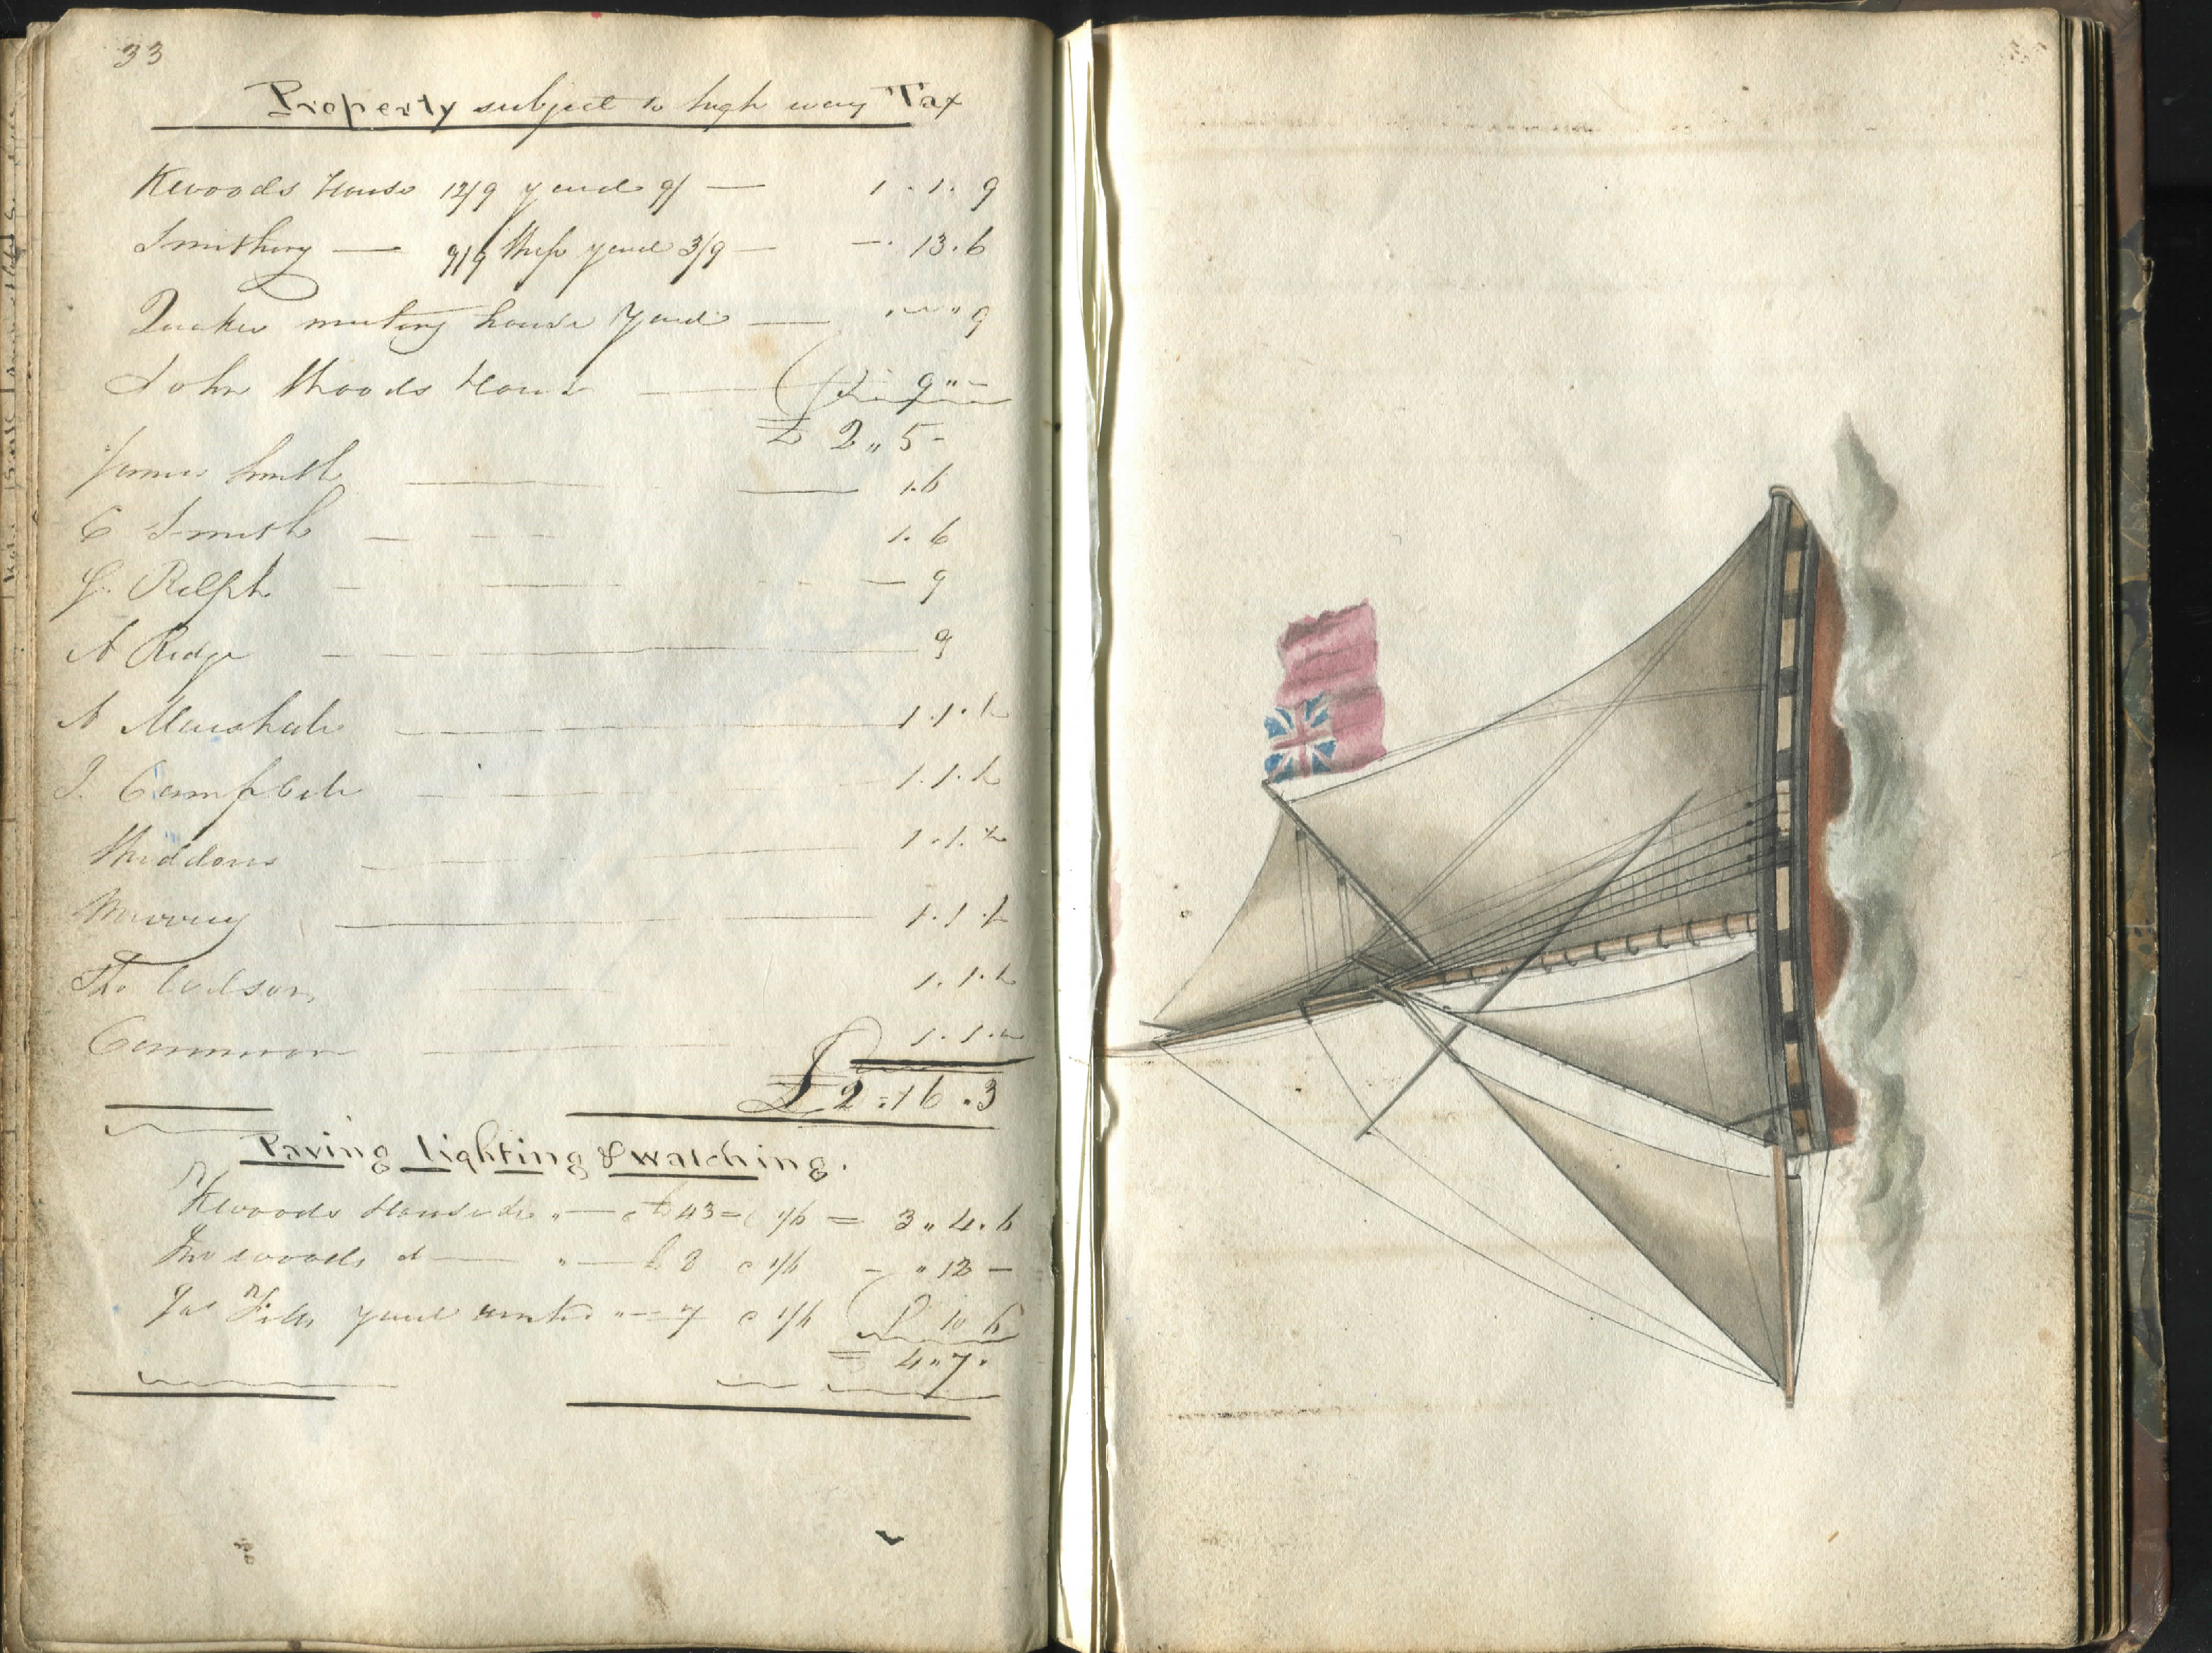 33
Property subject to high way Tax
Kwoods House 12/9 yard 9/ — 1 . 1 . 9
Smithery — 9/9 yard 3/9 — - . 13 . 6
Quaker meeting house Yard — " " 9
John Woods House — 9 " -
£ 2 " 5 -
James Smith — 1.6
C Smith — 1. 6
J. Relph — 9
A Ridge — 9
A Marshall — 1.1.½
J. Campbell — 1.1.½
1.1.½
Murray — 1.1.½
Tho Codson — 1.1.½
Cammron — 1.1.½
£ 2 . 16 . 3
Paving Lighting & watching.
Kwoods House &c " — £ 43 = @ 1/6 = 3 " 4 . 6
woods d — " — £ 8 @ 1/6 - " 12 -
Jas yard " — 7 @ 1/6 10 6
= 4 " 7 "